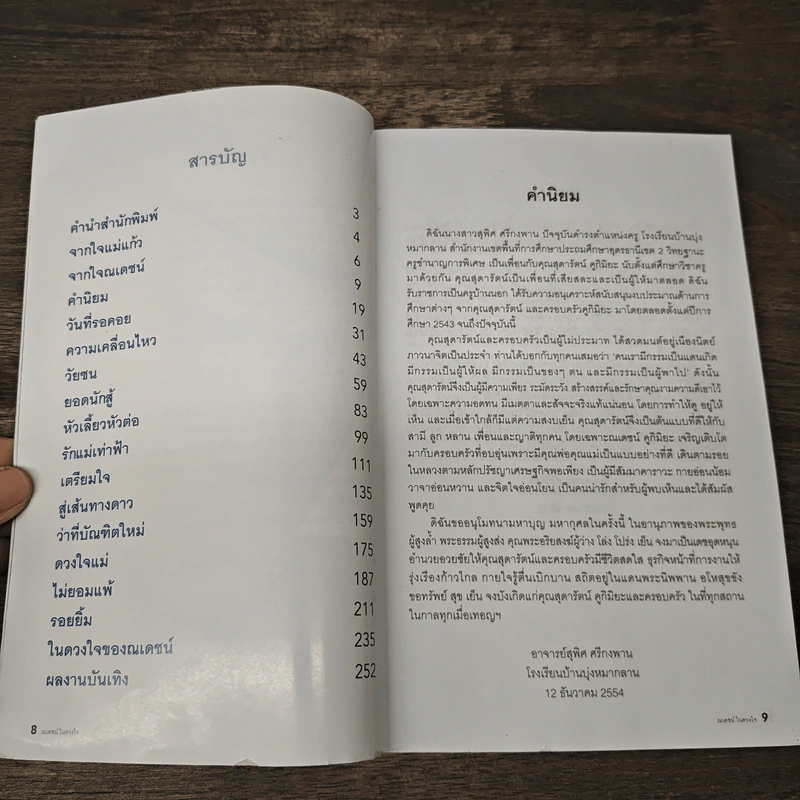 สารบัญ
คำนำสำนักพิมพ์ 3
จากใจแม่แก้ว 4
จากใจณเดชน์ 6
คำนิยม 9
วันที่รอคอย 19
ความเคลื่อนไหว 31
วัยซน 43
ยอดนักสู้ 59
หัวเลี้ยวหัวต่อ 83
รักแม่เท่าฟ้า 99
เตรียมใจ 111
สู่เส้นทางดาว 135
ว่าที่บัณฑิตใหม่ 159
ดวงใจแม่ 175
ไม่ยอมแพ้ 187
รอยยิ้ม 211
ในดวงใจของณเดชน์ 235
ผลงานบันเทิง 252
8 ณเดชน์ ในดวงใจ
คำนิยม
ดิฉันนางสาวสุพิศ ศรีกงพาน ปัจจุบันดำรงตำแหน่งครู โรงเรียนบ้านบุ่ง
หมากลาน สำนักงานเขตพื้นที่การศึกษาประถมศึกษาอุดรธานีเขต 2 วิทยฐานะ
ครูชำนาญการพิเศษ เป็นเพื่อนกับคุณสุดารัตน์ คูกิมิยะ นับตั้งแต่ศึกษาวิชาครู
มาด้วยกัน คุณสุดารัตน์เป็นเพื่อนที่เสียสละและเป็นผู้ให้มาตลอด ดิฉัน
รับราชการเป็นครูบ้านนอก ได้รับความอนุเคราะห์สนับสนุนงบประมาณด้านการ
ศึกษาต่างๆ จากคุณสุดารัตน์ และครอบครัวคูกิมิยะ มาโดยตลอดตั้งแต่ปีการ
ศึกษา 2543 จนถึงปัจจุบันนี้
คุณสุดารัตน์และครอบครัวเป็นผู้ไม่ประมาท ได้สวดมนต์อยู่เนืองนิตย์
ภาวนาจิตเป็นประจำ ท่านได้บอกกับทุกคนเสมอว่า 'คนเรามีกรรมเป็นแดนเกิด
มีกรรมเป็นผู้ให้ผล มีกรรมเป็นของๆ ตน และมีกรรมเป็นผู้พาไป' ดังนั้น
คุณสุดารัตน์จึงเป็นผู้มีความเพียร ระมัดระวัง สร้างสรรค์และรักษาคุณงามความดีเอาไว้
โดยเฉพาะความอดทน มีเมตตาและสัจจะจริงแท้แน่นอน โดยการทำให้ดู อยู่ให้
เห็น และเมื่อเข้าใกล้ก็มีแต่ความสงบเย็น คุณสุดารัตน์จึงเป็นต้นแบบที่ดีให้กับ
สามี ลูก หลาน เพื่อนและญาติทุกคน โดยเฉพาะณเดชน์ คูกิมิยะ เจริญเติบโต
มากับครอบครัวที่อบอุ่นเพราะมีคุณพ่อคุณแม่เป็นแบบอย่างที่ดี เดินตามรอย
ในหลวงตามหลักปรัชญาเศรษฐกิจพอเพียง เป็นผู้มีสัมมาคาราวะ กายอ่อนน้อม
วาจาอ่อนหวาน และจิตใจอ่อนโยน เป็นคนน่ารักสำหรับผู้พบเห็นและได้สัมผัส
พูดคุย
ดิฉันขออนุโมทนามหาบุญ มหากุศลในครั้งนี้ ในอานุภาพของพระพุทธ
ผู้สูงล้ำ พระธรรมผู้สูงส่ง คุณพระอริยสงฆ์ผู้ว่าง โล่ง โปร่ง เย็น จงมาเป็นเดชอุดหนุน
อำนวยอวยชัยให้คุณสุดารัตน์และครอบครัวมีชีวิตสดใส ธุรกิจหน้าที่การงานให้
รุ่งเรืองก้าวไกล กายใจรู้ตื่นเบิกบาน สถิตอยู่ในแดนพระนิพพาน อโหสุขขัง
ขอทรัพย์ สุข เย็น จงบังเกิดแก่คุณสุดารัตน์ คูกิมิยะและครอบครัว ในที่ทุกสถาน
ในกาลทุกเมื่อเทอญฯ
อาจารย์สุพิศ ศรีกงพาน
โรงเรียนบ้านบุ่งหมากลาน
12 ธันวาคม 2554
ณเดชน์ ในดวงใจ 9